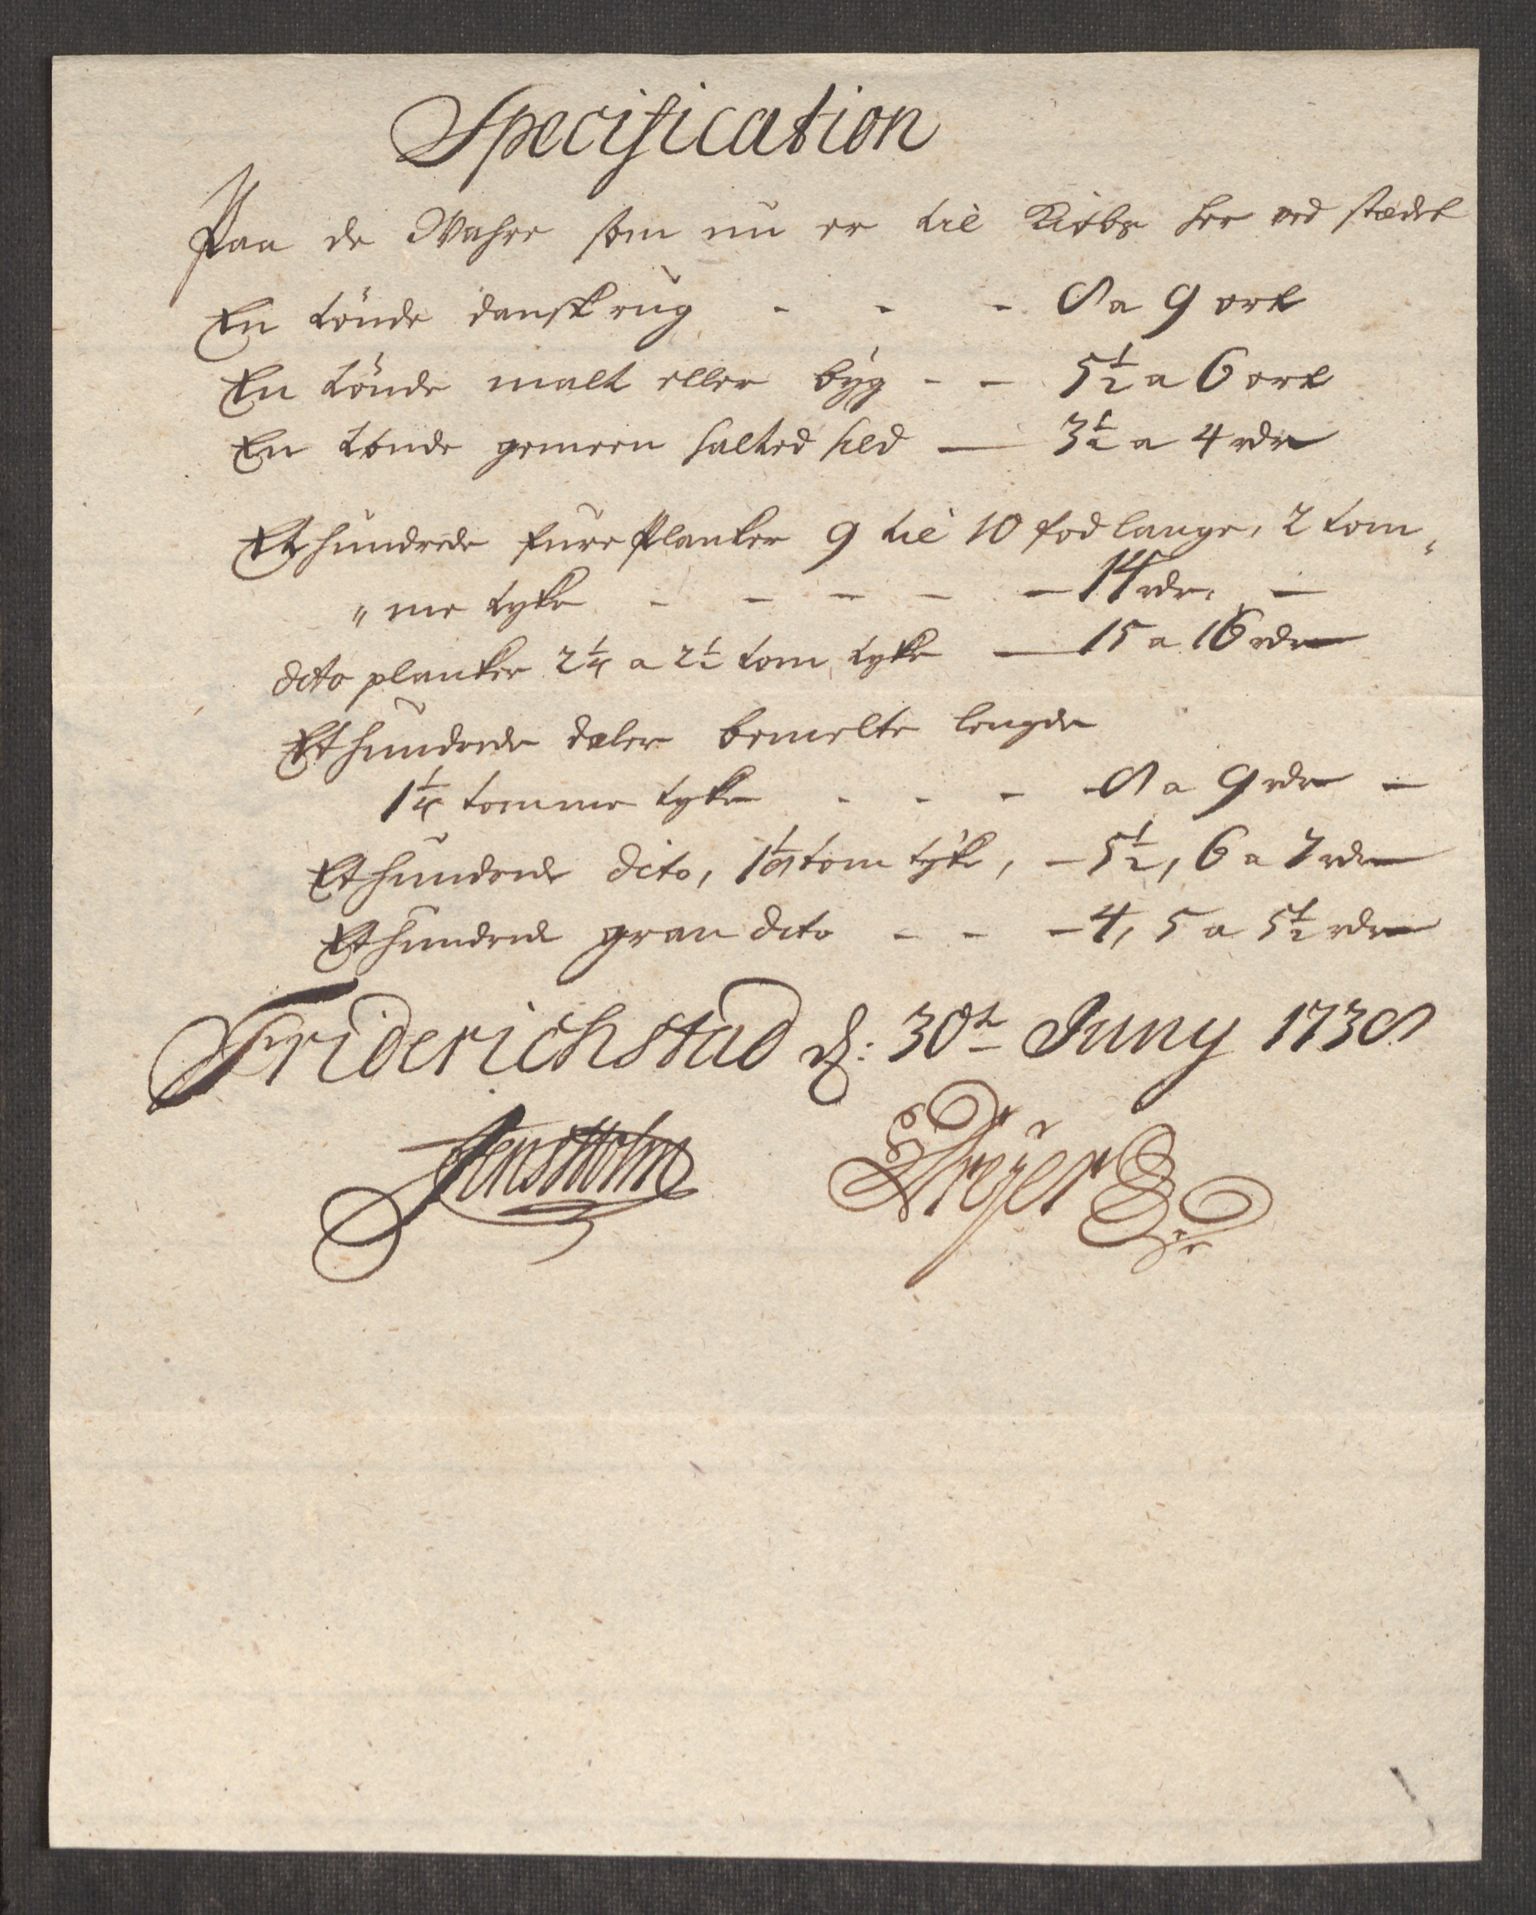 Specification
Paa de Wahre som nu er til Kiøbs her ved stædet
En tönde dansk rug - - - 8 a 9 ort
En tönde malt eller byg - - 5½ a 6 ort
En tønde gemeen salted sild — 3½ a 4 rdr
Et hundrede fure Planker 9 til 10 fod lange, 2 tom„
„me tyke - - - - — 14 rdr. —
dito planker 2¼ a 2½ tom tyke — 15 a 16 rdr
Et hundrede dæler bemelte lengde
1¼ tomme tyke - - - 8 a 9 rdr —
Et hundrede dito, 1⅛ tom tyke, — 5½, 6 a 7 rdr
Et hundrede gran dito - - — 4, 5 a 5½ rdr
Friderichstad d: 30te Juny 1738
Jens Holm Dreÿer